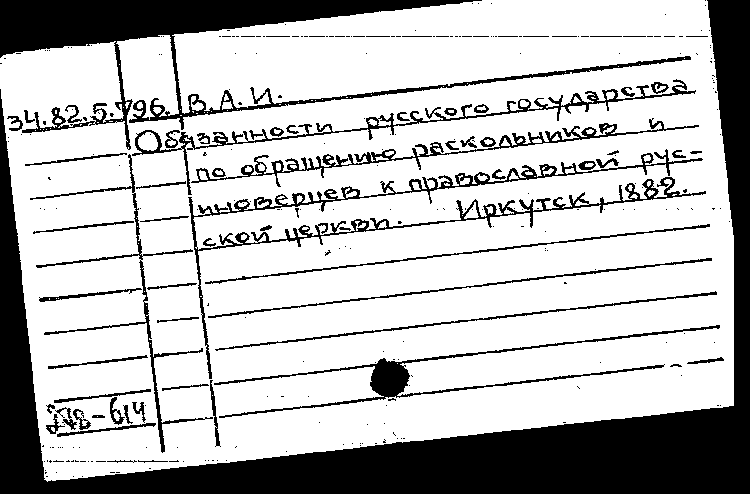 34.82.5.796. В.А.И.
Обязанности русского государства
по обращению раскольников и
иноверцев к православной рус=
ской церкви. Иркутск, 1882.
-614